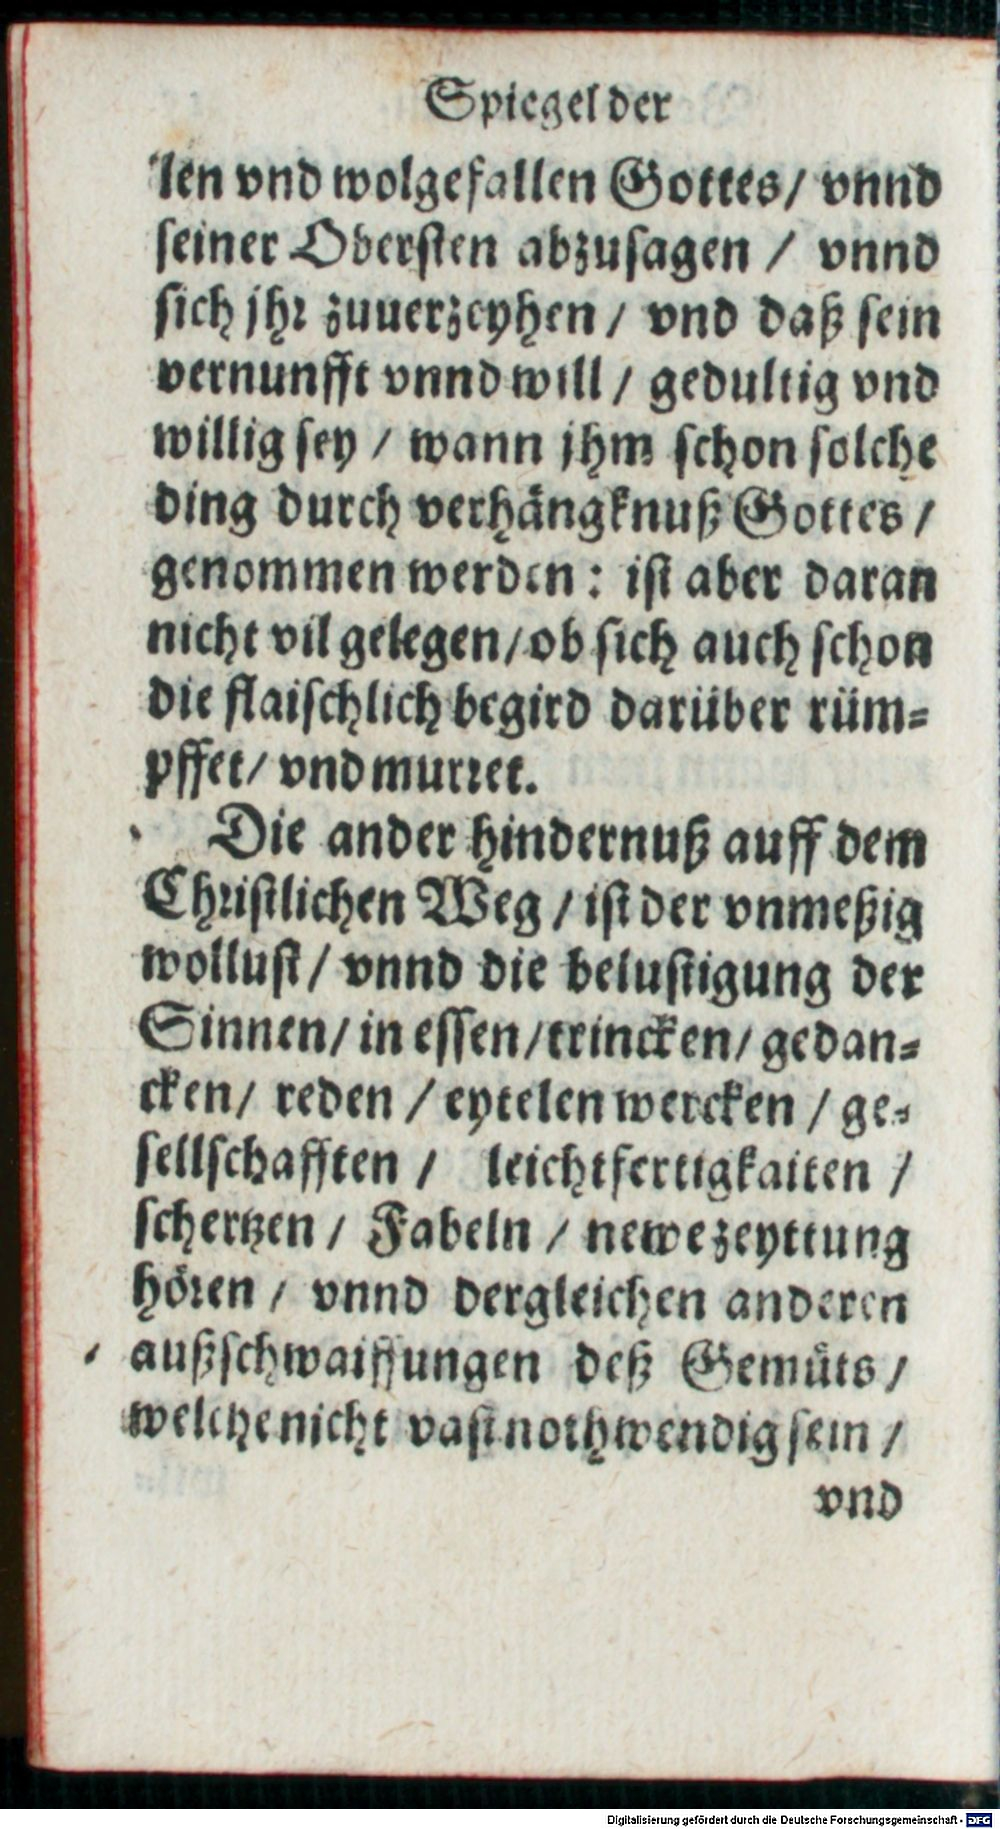 Spiegel der
len vnd wolgefallen Gottes/ vnnd
seiner Obersten abzusagen / vnnd
sich jhr zuuerzeyhen / vnd daß sein
vernunfft vnnd will / gedultig vnd
willig sey / wann jhm schon solche
ding durch verhängknuß Gottes /
genommen werden: ist aber daran
nicht vil gelegen/ ob sich auch schon
die flaischlich begird darüber rüm⸗
pffet/ vnd murret.
Die ander hindernuß auff dem
Christlichen Weg / ist der vnmeßig
wollust / vnnd die belustigung der
Sinnen/ in essen/ trincken/ gedan⸗
cken/ reden / eytelen wercken / ge⸗
sellschafften / leichtfertigkaiten /
schertzen / Fabeln / newe zeyttung
hören / vnnd dergleichen anderen
außschwaiffungen deß Gemüts /
welche nicht vast nothwendig sein /
vnd
Digitalisierung gefördert durch die Deutsche Forschungsgemeinschaft - DFG